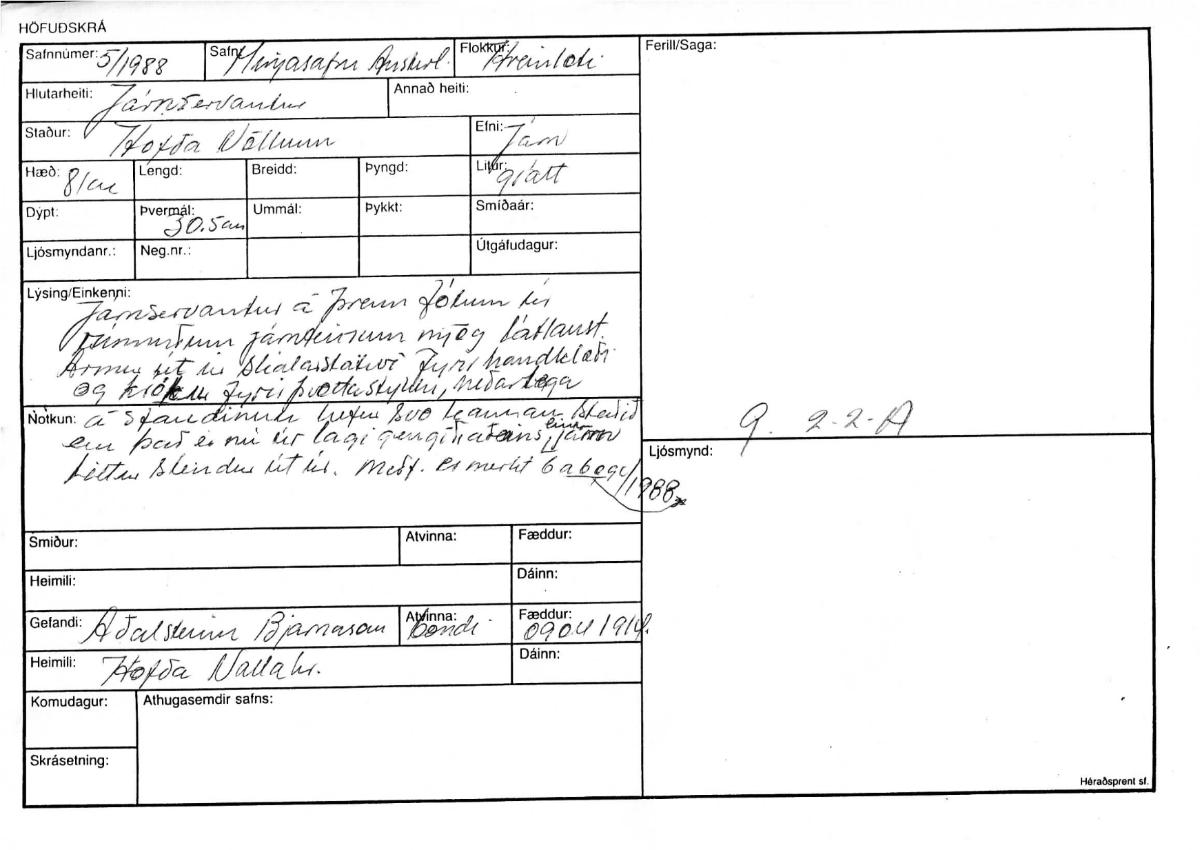 HÖFUÐSKRÁ
Safnnúmer: 5/1988 Safn: Minjasafn Austurl. Flokkur: Hreinlæti
Hlutarheiti: Járnservantur Annað heiti:
Staður: Hofða Völlum Efni: Járn
Hæð: 81cm Lengd: Breidd: Þyngd: Litur: grátt
Dýpt: Þvermál: 30.5cm Ummál: Þykkt: Smíðaár:
Ljósmyndanr.: Neg.nr.: Útgáfudagur:
Lýsing/Einkenni:
Járnservantur á þrem fótum úr
járnteinum mjög látlaust.
Armur út úr skálarstativi fyrir handklæði
og krókur fyrir þvottastykki, neðarlega
Notkun: á standinum hefur svo kannan staðið
en það er nú úr lagi gengið aðeins einn járn
stendur út úr. Meðf. er merkt 6a b og c/1988
Smiður: Atvinna: Fæddur:
Heimili: Dáinn:
Gefandi: Aðalsteinn Bjarnason Atvinna: bóndi Fæddur: 09041914.
Heimili: Hofða Vallahr. Dáinn:
Komudagur: Athugasemdir safns:
Skrásetning:
Ferill/Saga:
9. 2-2-A
Ljósmynd:
Héraðsprent sf.